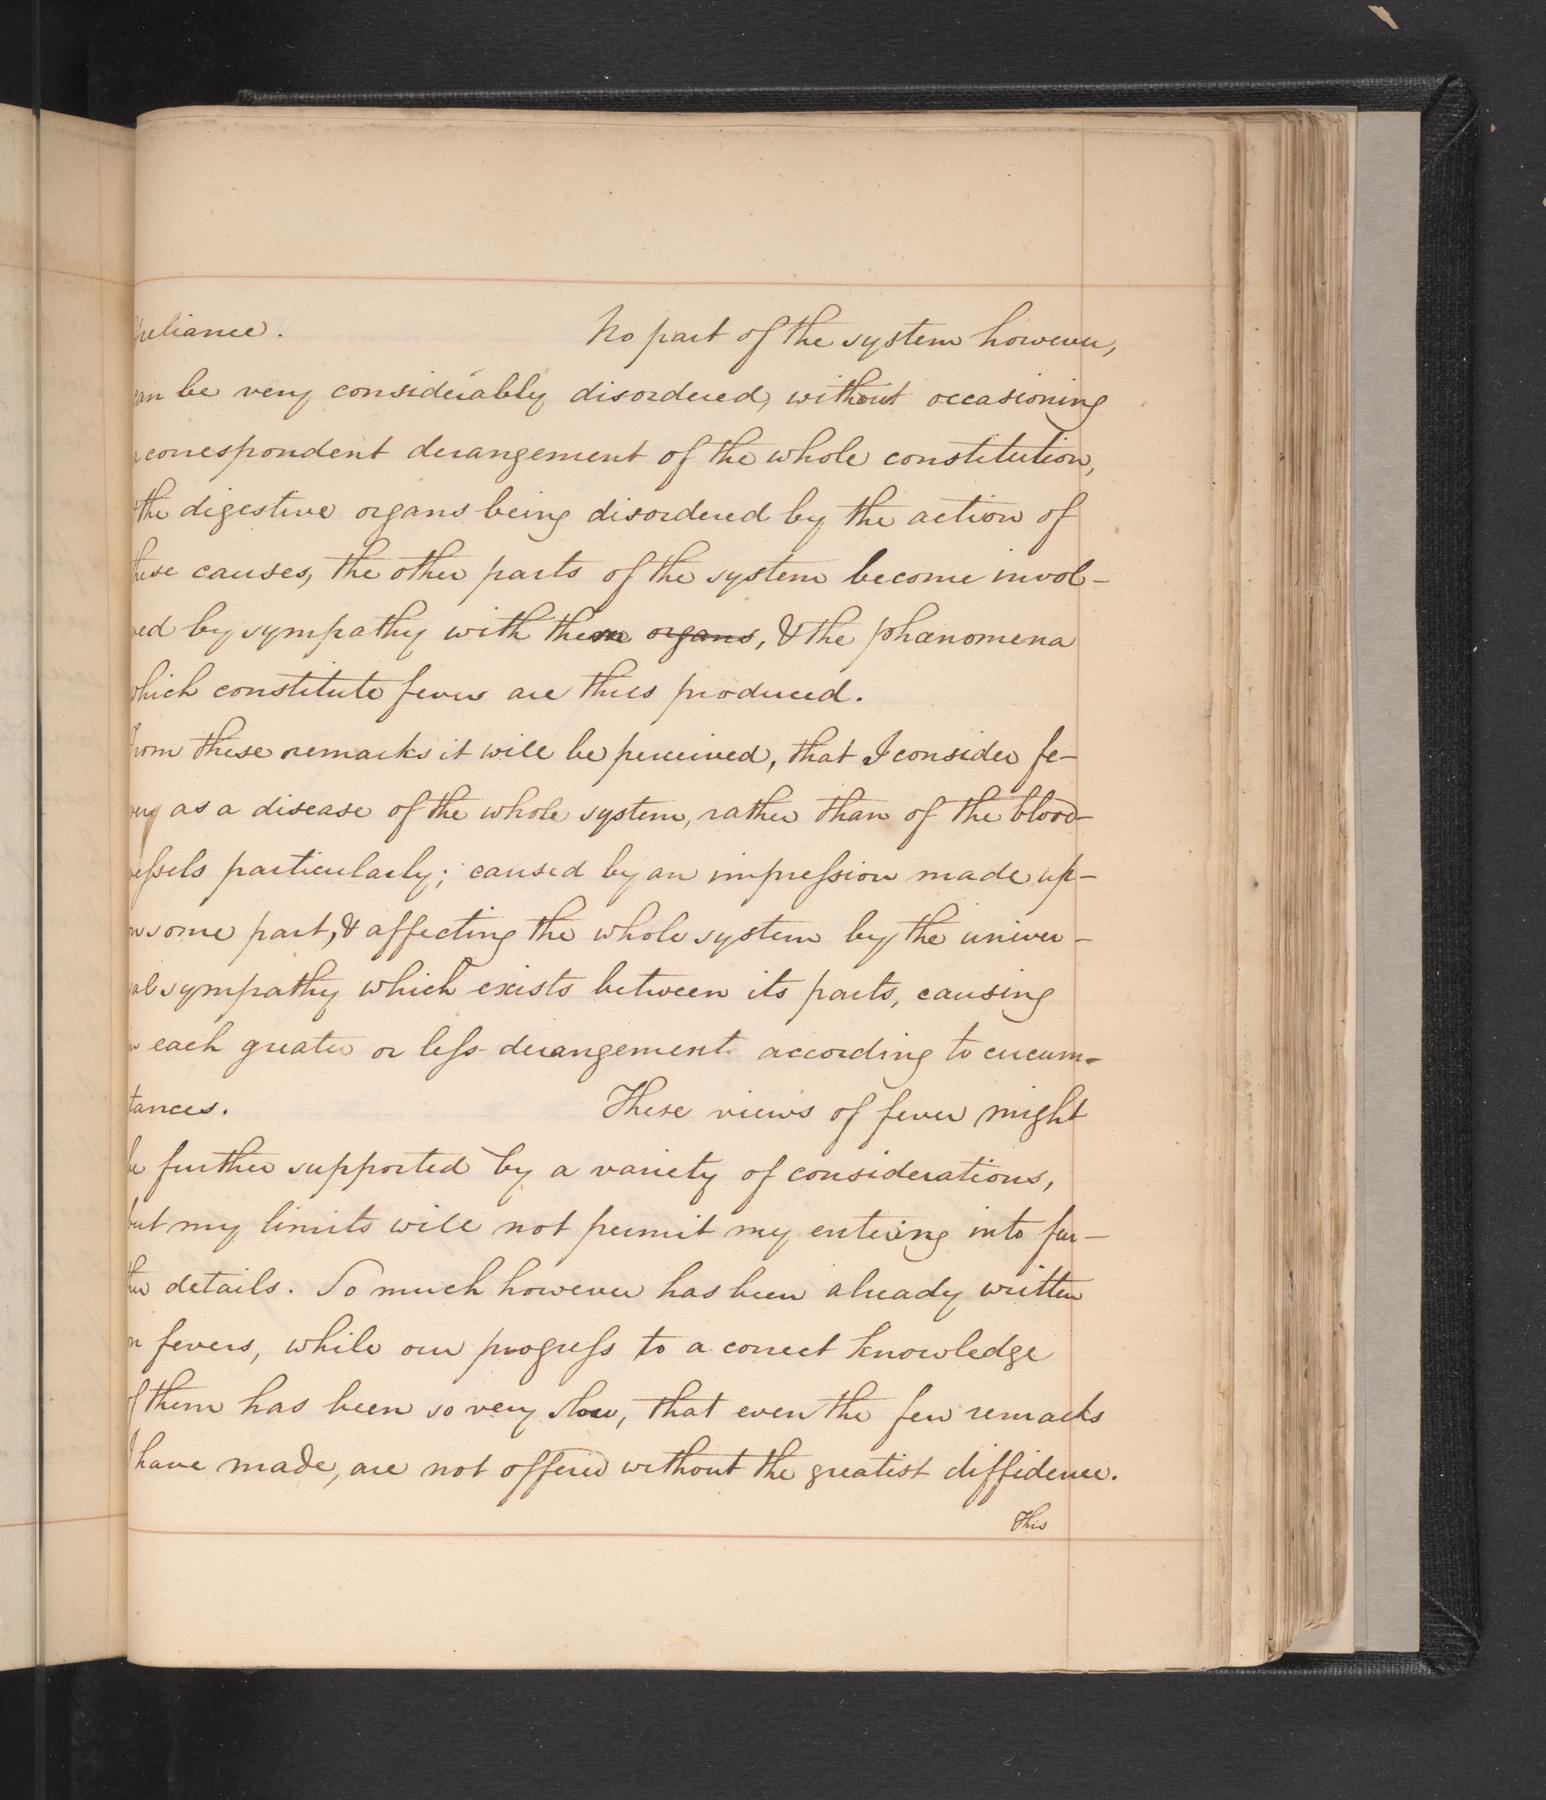 reliance. No part of the system however,
can be very considerably disordered, without occasioning
a correspondent derangement of the whole constitution,
& the digestive organs being disordered by the action of
these causes, the other parts of the system become invol-
ved by sympathy with them organs, & the phænomena
which constitute fever are thus produced.
From these remarks it will be perceived, that I consider fe-
ver, as a disease of the whole system, rather than of the blood-
vessels particularly; caused by an impression made up-
on some part, & affecting the whole system by the univer-
sal sympathy which exists between its parts, causing
in each greater or less derangement according to circum-
stances. These views of fever might
be further supported by a variety of considerations,
but my limits will not permit my entering into fur-
ther details. So much however has been already written
on fevers, while our progress to a correct knowledge
of them has been so very slow, that even the few remarks
I have made, are not offered without the greatest diffidence.
This